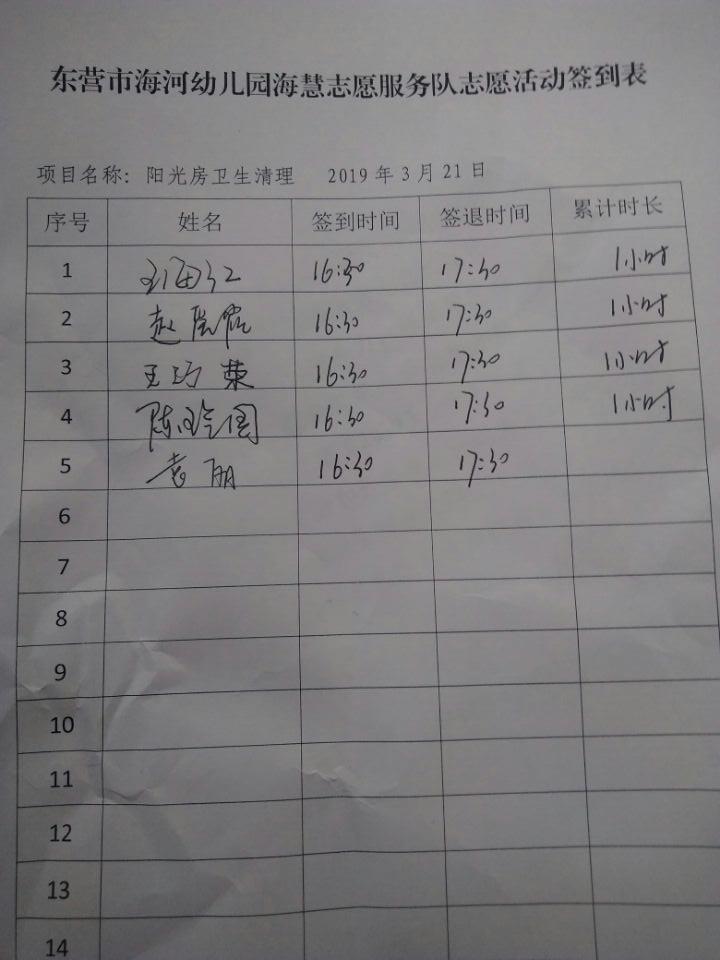 东营市海河幼儿园海慧志愿服务队志愿活动签到表
项目名称：阳光房卫生清理 2019 年 3 月 21 日
序号 姓名 签到时间 签退时间 累计时长
1 16:30 17:30 1小时
2 赵 16:30 17:30 1小时
3 王巧荣 16:30 17:30 1小时
4 陈 16:30 17:30 1小时
5 袁丽 16:30 17:30
6
7
8
9
10
11
12
13
14